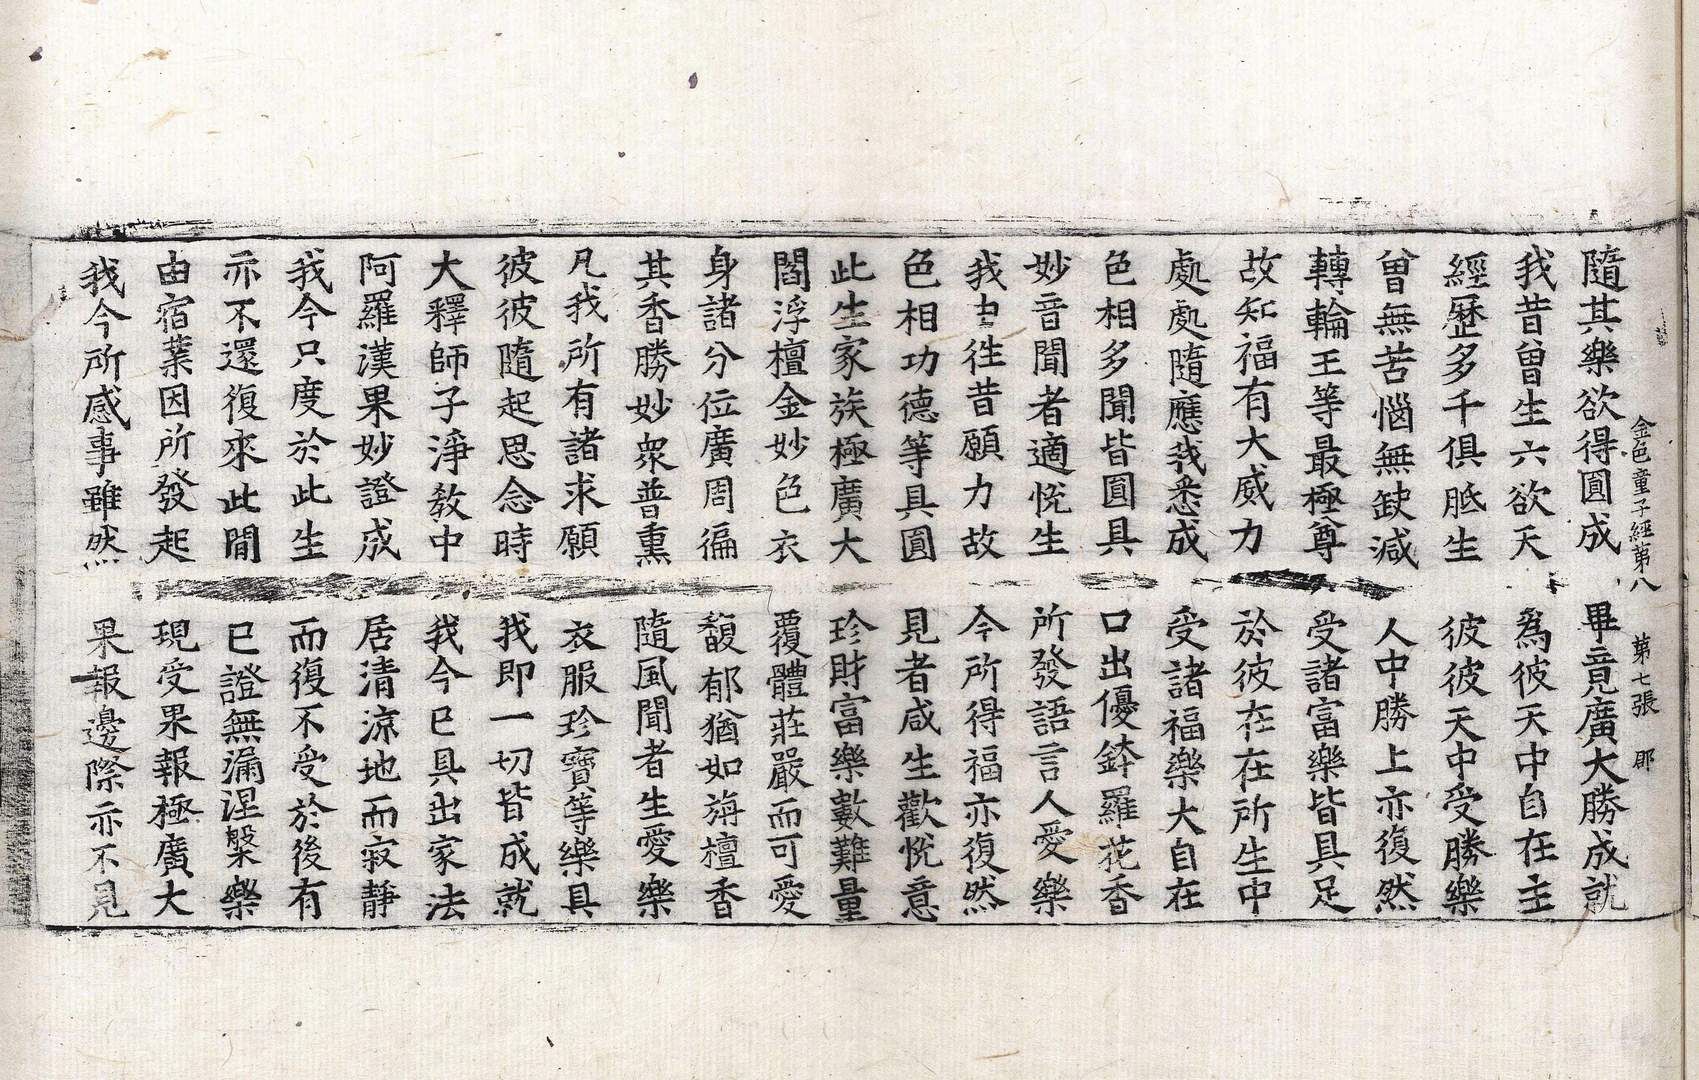 金色童子經第八 第七張 郎
隨其樂欲得圓成 畢竟廣大勝成就
我昔曾生六欲天 為彼天中自在主
經歷多千俱胝生 彼彼天中受勝樂
曾無苦惱無缺減 人中勝上亦復然
轉輪王等最極尊 受諸富樂皆具足
故知福有大威力 於彼在在所生中
處處隨應我悉成 受諸福樂大自在
色相多聞皆圓具 口出優鉢羅花香
妙音聞者適悅生 所發語言人愛樂
我由往昔願力故 今所得福亦復然
色相功德等具圓 見者咸生歡悅意
此生家族極廣大 珍財富樂數難量
閻浮檀金妙色衣 覆體莊嚴而可愛
身諸分位廣周徧 馥郁猶如旃檀香
其香勝妙衆普熏 隨風聞者生愛樂
凡我所有諸求願 衣服珍寶等樂具
彼彼隨起思念時 我即一切皆成就
大釋師子淨教中 我今已具出家法
阿羅漢果妙證成 居清涼地而寂靜
我今只度於此生 而復不受於後有
亦不還復來此間 已證無漏涅槃樂
由宿業因所發起 現受果報極廣大
我今所感事雖然 果報邊際亦不見